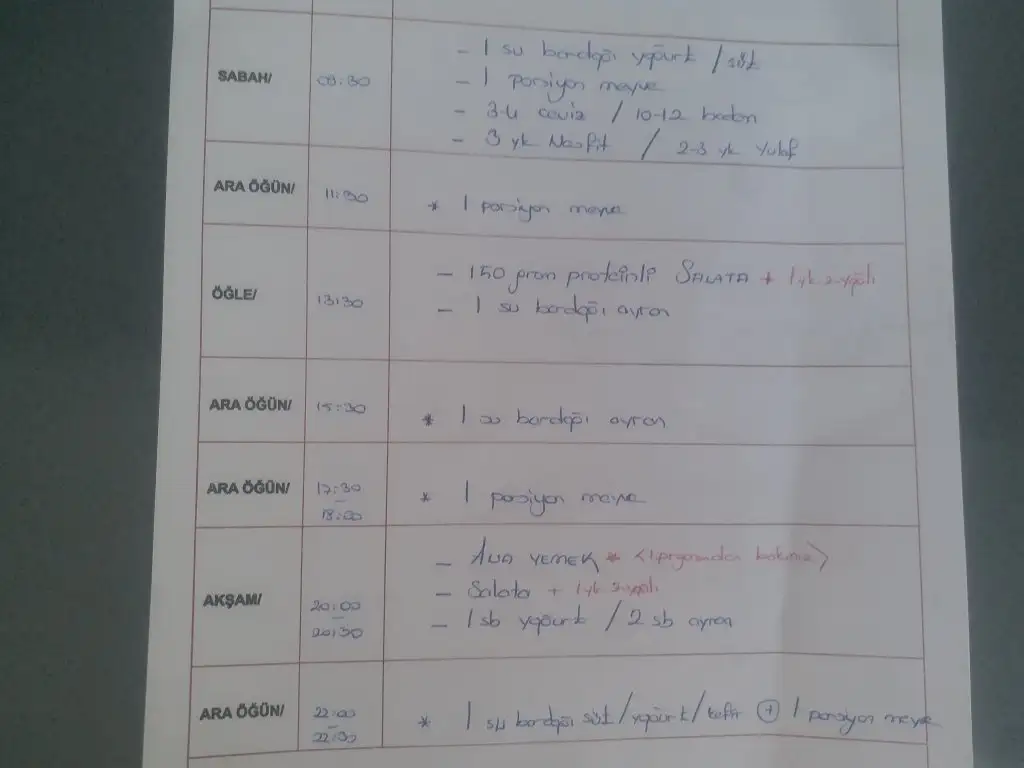 SABAH/
09:30
- 1 su bardağı yoğurt / süt
- 1 porsiyon meyve
- 3-4 ceviz / 10-12 badem
- 3 yk Nesfit / 2-3 yk Yulaf
ARA ÖĞÜN/
11:30
* 1 porsiyon meyve
ÖĞLE/
13:30
- 150 gram proteinli SALATA + 1 yk z.yağlı
- 1 su bardağı ayran
ARA ÖĞÜN/
15:30
* 1 su bardağı ayran
ARA ÖĞÜN/
17:30
18:00
* 1 porsiyon meyve
AKŞAM/
20:00
20:30
- ANA YEMEK *
- Salata + 1 yk z.yağlı
- 1 sb yoğurt / 2 sb ayran
ARA ÖĞÜN/
22:00
22:30
* 1 su bardağı süt/yoğurt/kefir + 1 porsiyon meyve